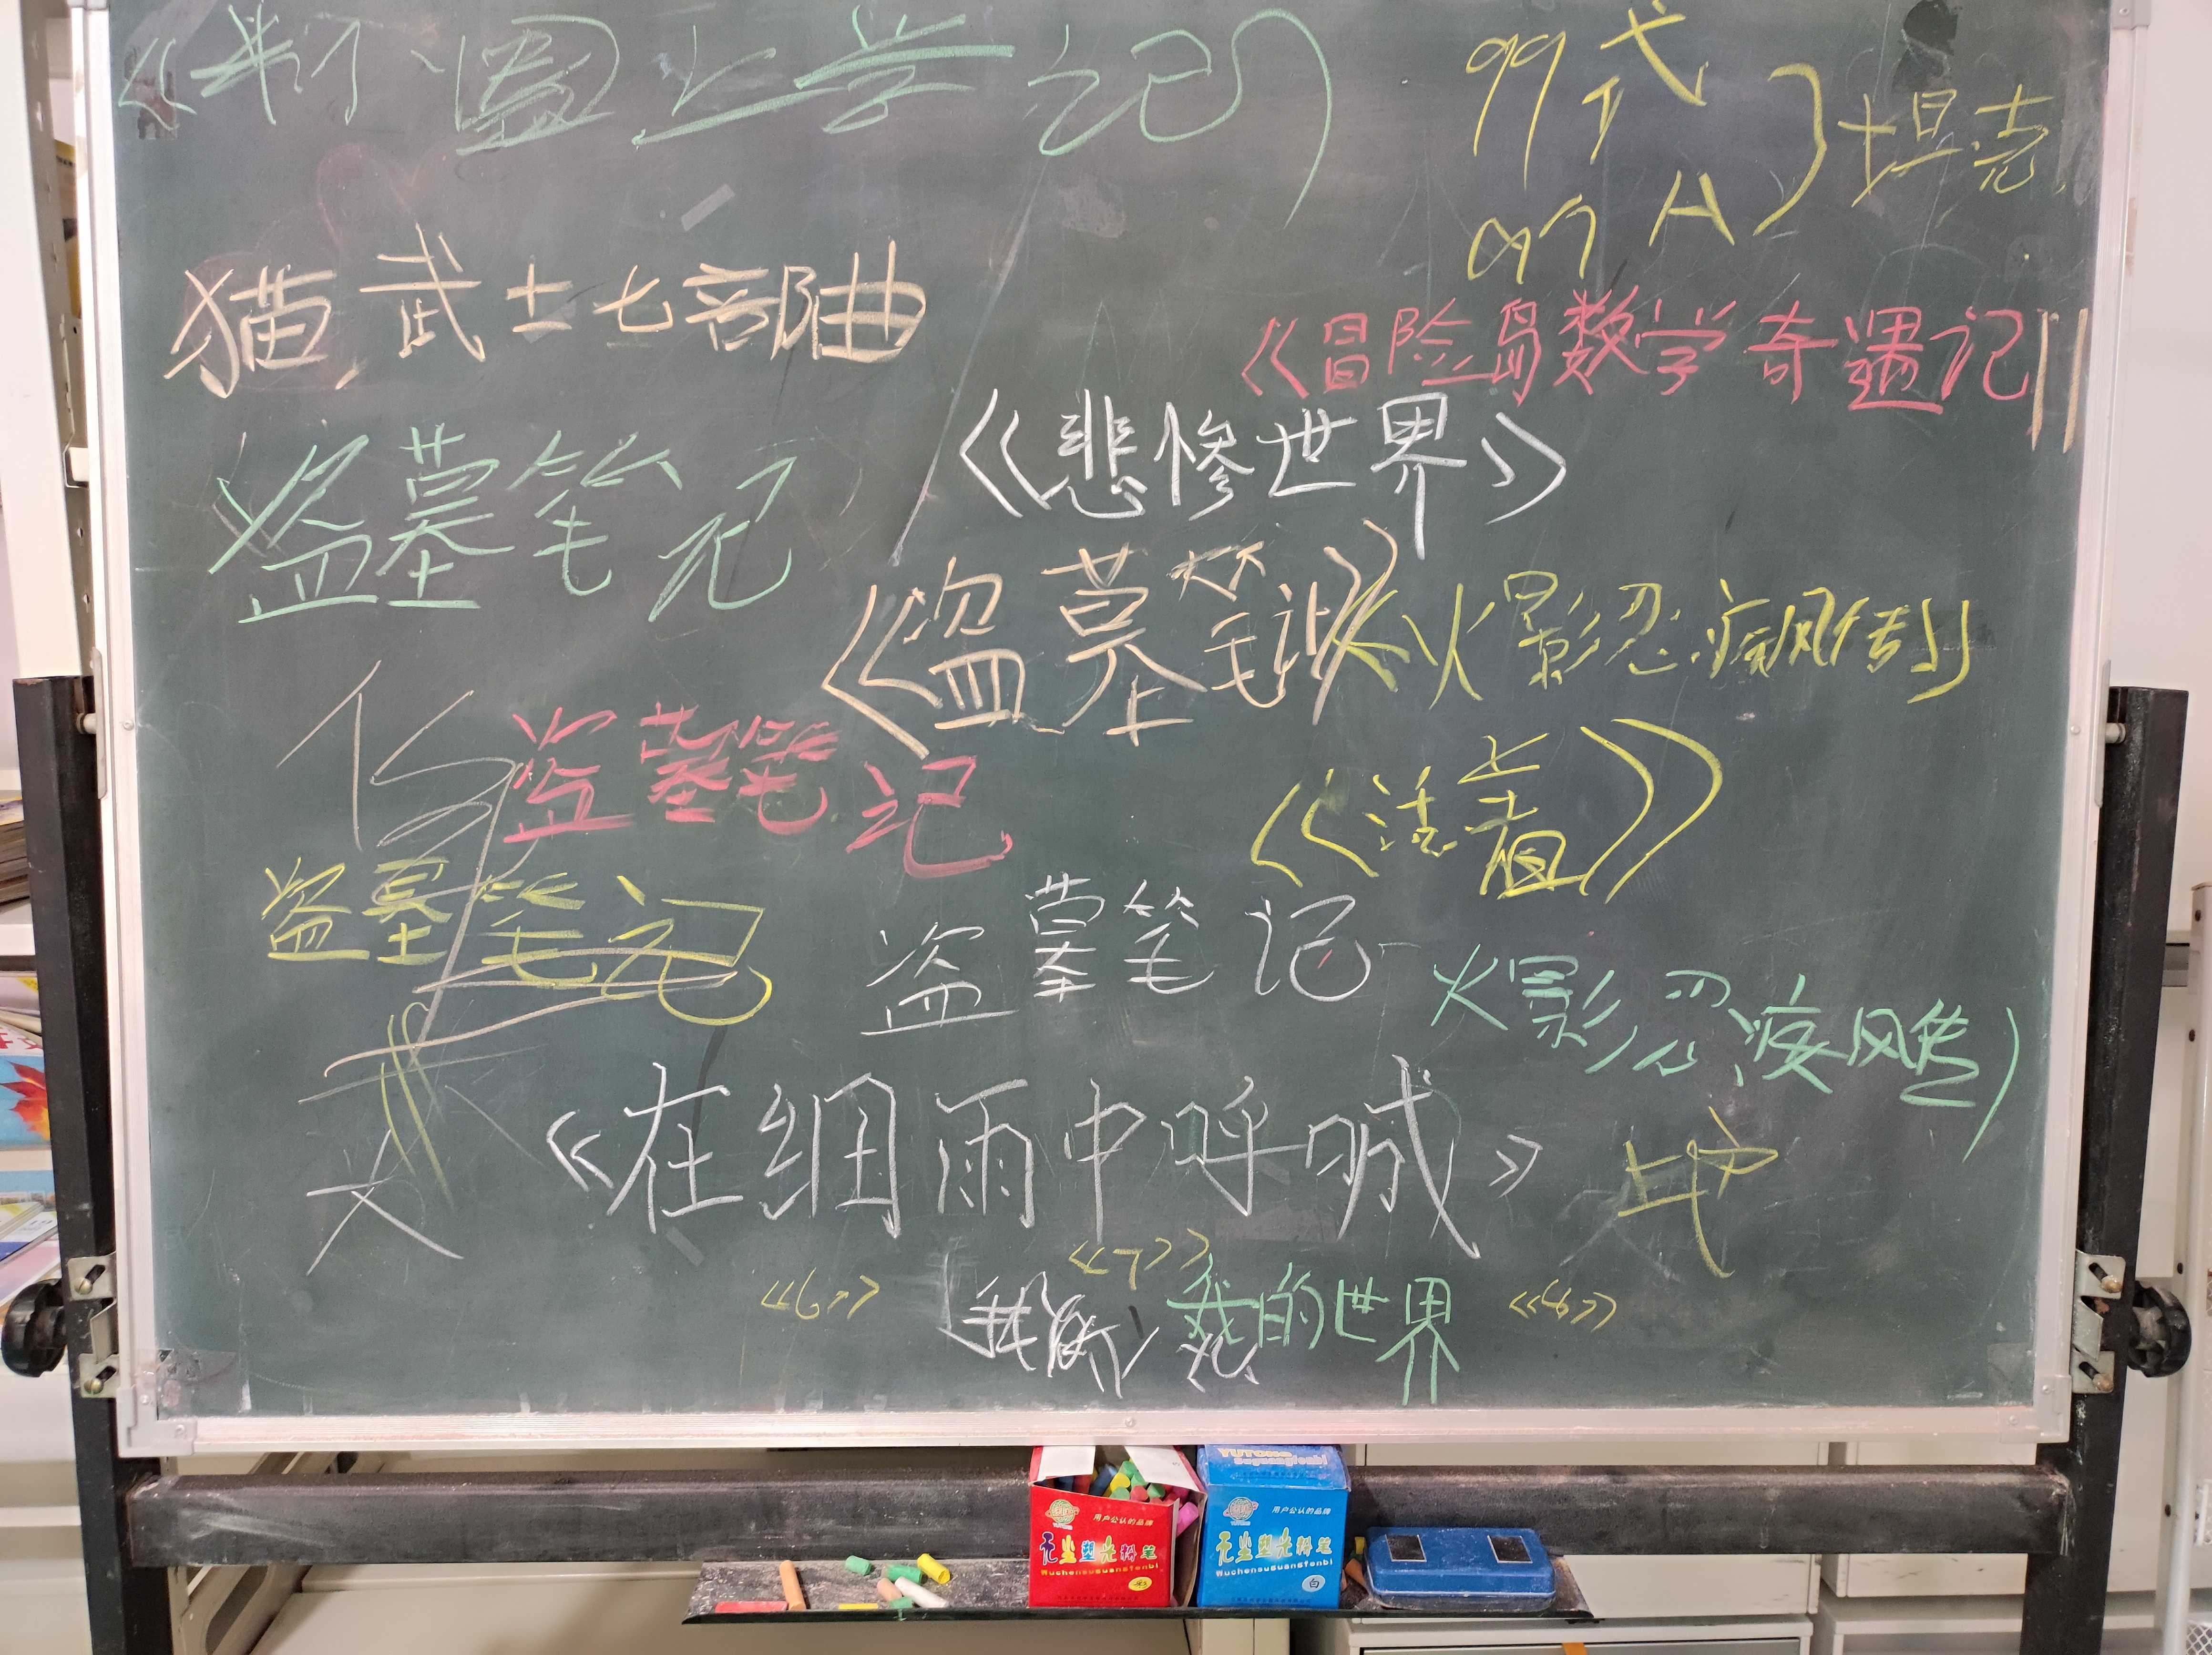 《米小圈上学记》
99式
99A
坦克
猫武士七部曲
《冒险岛数学奇遇记》
《悲惨世界》
盗墓笔记
《盗墓笔记》
《火影忍疾风传》
盗墓笔记
《活着》
盗墓笔记
盗墓笔记
火影忍疾风传)
《在细雨中呼喊》
《7》
《6》
我的世界
用户公认的品牌
无尘塑光粉笔
Wuchensuguangfenbi
YUTONG
用户公认的品牌
无尘塑光粉笔
Wuchensuguangfenbi
白